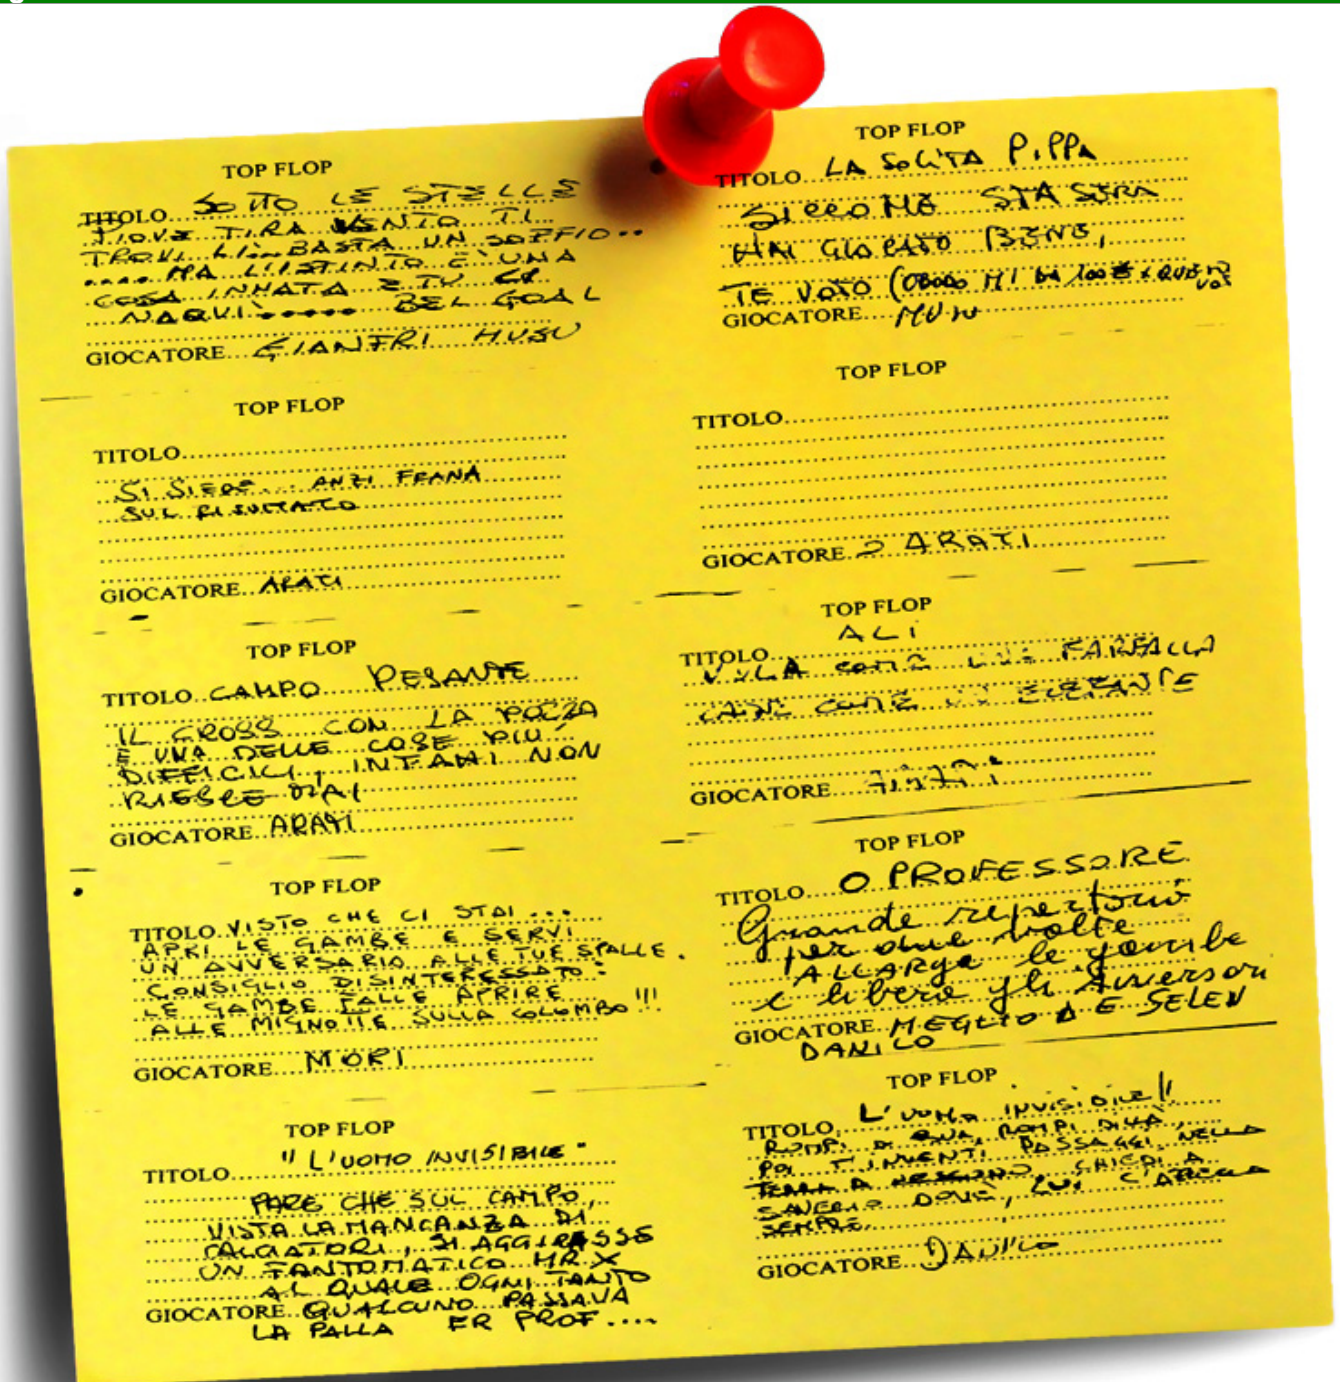 TOP FLOP
TITOLO SOTTO LE STELLE
PIOVE TIRA VENTO TI
TROVI LI... BASTA UN SOFFIO..
.... MA L'ISTINTO E' UNA
COSA INNATA E TU
NAQUI ..... BEL GOAL
GIOCATORE GIANFRI MUSU
TOP FLOP
TITOLO
SI SIEDE... ANZI FRANA
SUL RISULTATO
GIOCATORE ARATI
TOP FLOP
TITOLO CAMPO PESANTE
IL CROSS CON LA POZZA
E UNA DELLE COSE PIU'
DIFFICILI, INFATTI NON
RIESCE MAI
GIOCATORE ARATI
TOP FLOP
TITOLO VISTO CHE CI STAI...
APRI LE GAMBE E SERVI
UN AVVERSARIO ALLE TUE SPALLE.
CONSIGLIO DISINTERESSATO:
LE GAMBE FALLE APRIRE
ALLE MIGNOTTE SULLA COLOMBO!!!
GIOCATORE MORI
TOP FLOP
TITOLO "L'UOMO INVISIBILE"
PARE CHE SUL CAMPO,
VISTA LA MANCANZA DI
CALCIATORI, SI AGGIRASSE
UN FANTOMATICO MR X
AL QUALE OGNI TANTO
GIOCATORE QUALCUNO PASSAVA
LA PALLA ER PROF....
TOP FLOP
TITOLO LA SOLITA PIPPA
SICCOME STASERA
HAI GIOCATO BENE,
TE VOTO (OBODO MI DA 100 € X QUESTO
GIOCATORE
TOP FLOP
TITOLO
GIOCATORE D ARATI
TOP FLOP
ALI
TITOLO
VOLA COME UNA FARFALLA
CADE COME UN ELEFANTE
GIOCATORE
TOP FLOP
TITOLO O PROFESSORE
Grande repertorio
per due volte
ALLARGA le gambe
e libera gli Avversari
GIOCATORE MEGLIO D E SELEN
DANILO
TOP FLOP
TITOLO L'UOMO INVISIBILE!!
ROMPI DI QUA, ROMPI DI LA',
POI T'INVENTI PASSAGGI NELLA
TERRA A NESSUNO, CHIEDI A
SAVERIO DOVE, LUI C'AZZECCA
SEMPRE.
GIOCATORE DANILO